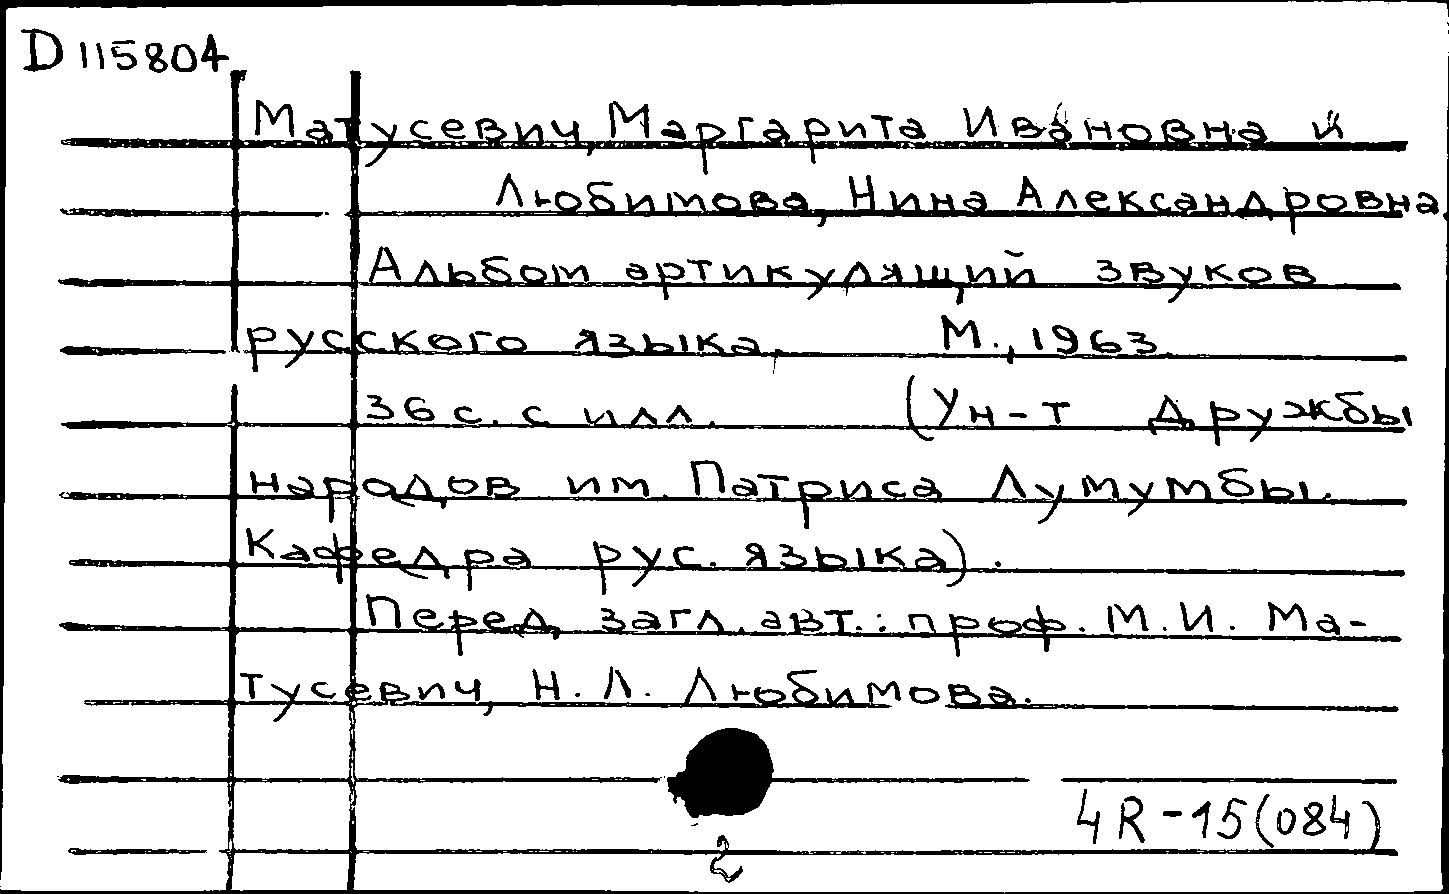 D 115804
Матусевич, Маргарита Ивановна и
Любимова, Нина Александровна.
Альбом артикуляций звуков
русского языка. М., 1963.
36 с. с илл. (Ун-т Дружбы
народов им. Патриса Лумумбы.
Кафедра рус. языка).
Перед загл. авт.: проф. М.И. Ма-
тусевич, Н.Л. Любимова.
4R-15(084)
2